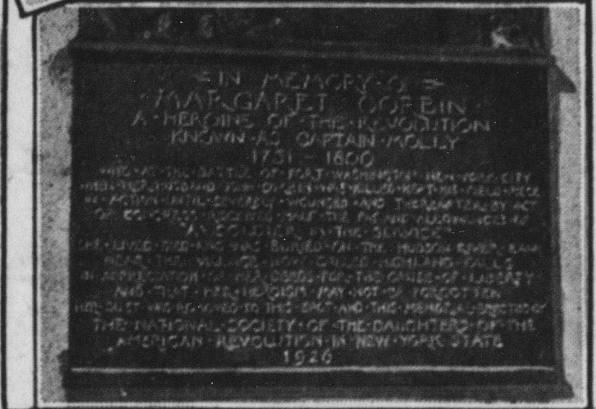 IN MEMORY OF
MARGARET CORBIN
A HEROINE OF THE REVOLUTION
KNOWN AS CAPTAIN MOLLY
1751 - 1800
WHO AT THE BATTLE OF FORT WASHINGTON NEW YORK CITY
WHEN HER HUSBAND JOHN CORBIN WAS KILLED KEPT HIS FIELD PIECE
IN ACTION UNTIL SEVERELY WOUNDED AND THEREAFTER BY ACT
OF CONGRESS RECEIVED HALF THE PAY AND ALLOWANCES OF
"A SOLDIER IN THE SERVICE"
SHE LIVED DIED AND WAS BURIED ON THE HUDSON RIVER BANK
NEAR THE VILLAGE NOW CALLED HIGHLAND FALLS
IN APPRECIATION OF HER DEEDS FOR THE CAUSE OF LIBERTY
AND THAT HER HEROISM MAY NOT BE FORGOTTEN
HER DUST WAS REMOVED TO THIS SPOT AND THIS MEMORIAL ERECTED BY
THE NATIONAL SOCIETY OF THE DAUGHTERS OF THE
AMERICAN REVOLUTION IN NEW YORK STATE
1926